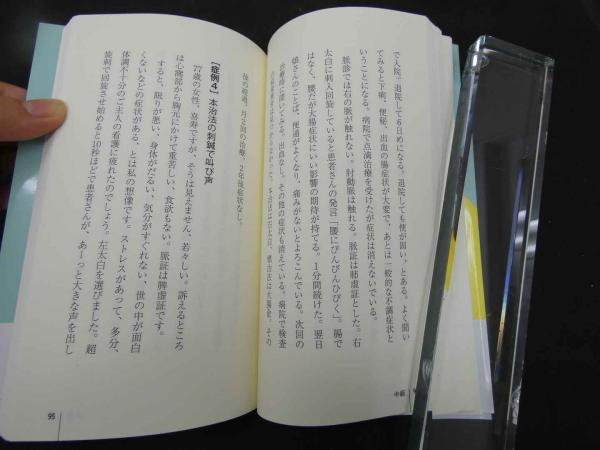 で入院。退院して6日めになる。退院しても便が固い、とある。よく聞い
てみると下痢、便秘、出血の腸症状が大変で、あとは一般的な不調症状と
いうことになる。病院で点滴治療を受けたが症状は消えないでいる。
脈診では右の脈が触れない。肘動脈は触れる。脈証は肺虚証とした。右
太白に刺入回旋していると患者さんの発言「腰にびんびんひびく」。腸で
はなく、腰だが大腸症状にいい影響の期待が持てる。1分間続けた。翌日
娘さんのことば、便通がよくなり、痛みがないとよろこんでいる。次回の
治療時に聞いてみる。出血なし。その他の症状も消えている。病院で検査
本治法は右太白、標治法は大腸兪、その
後の経過、月2回の治療、2年後症状なし。
[症例4] 本治法の刺鍼で叫び声
77歳の女性。喜寿ですが、そうは見えません、若々しい。訴えるところ
は心窩部から胸元にかけて重苦しい、食欲もない。脈証は脾虚証です。
すると、眠りが悪い、身体がだるい、気分がすぐれない、世の中が面白
くないなどの症状がある、とは私の想像です。ストレスがあって、多分、
体調不十分のご主人の看護に疲れたのでしょう。左太白を選びました。超
旋刺で回旋させ始めると10秒ほどで患者さんが、あーっと大きな声を出し
95